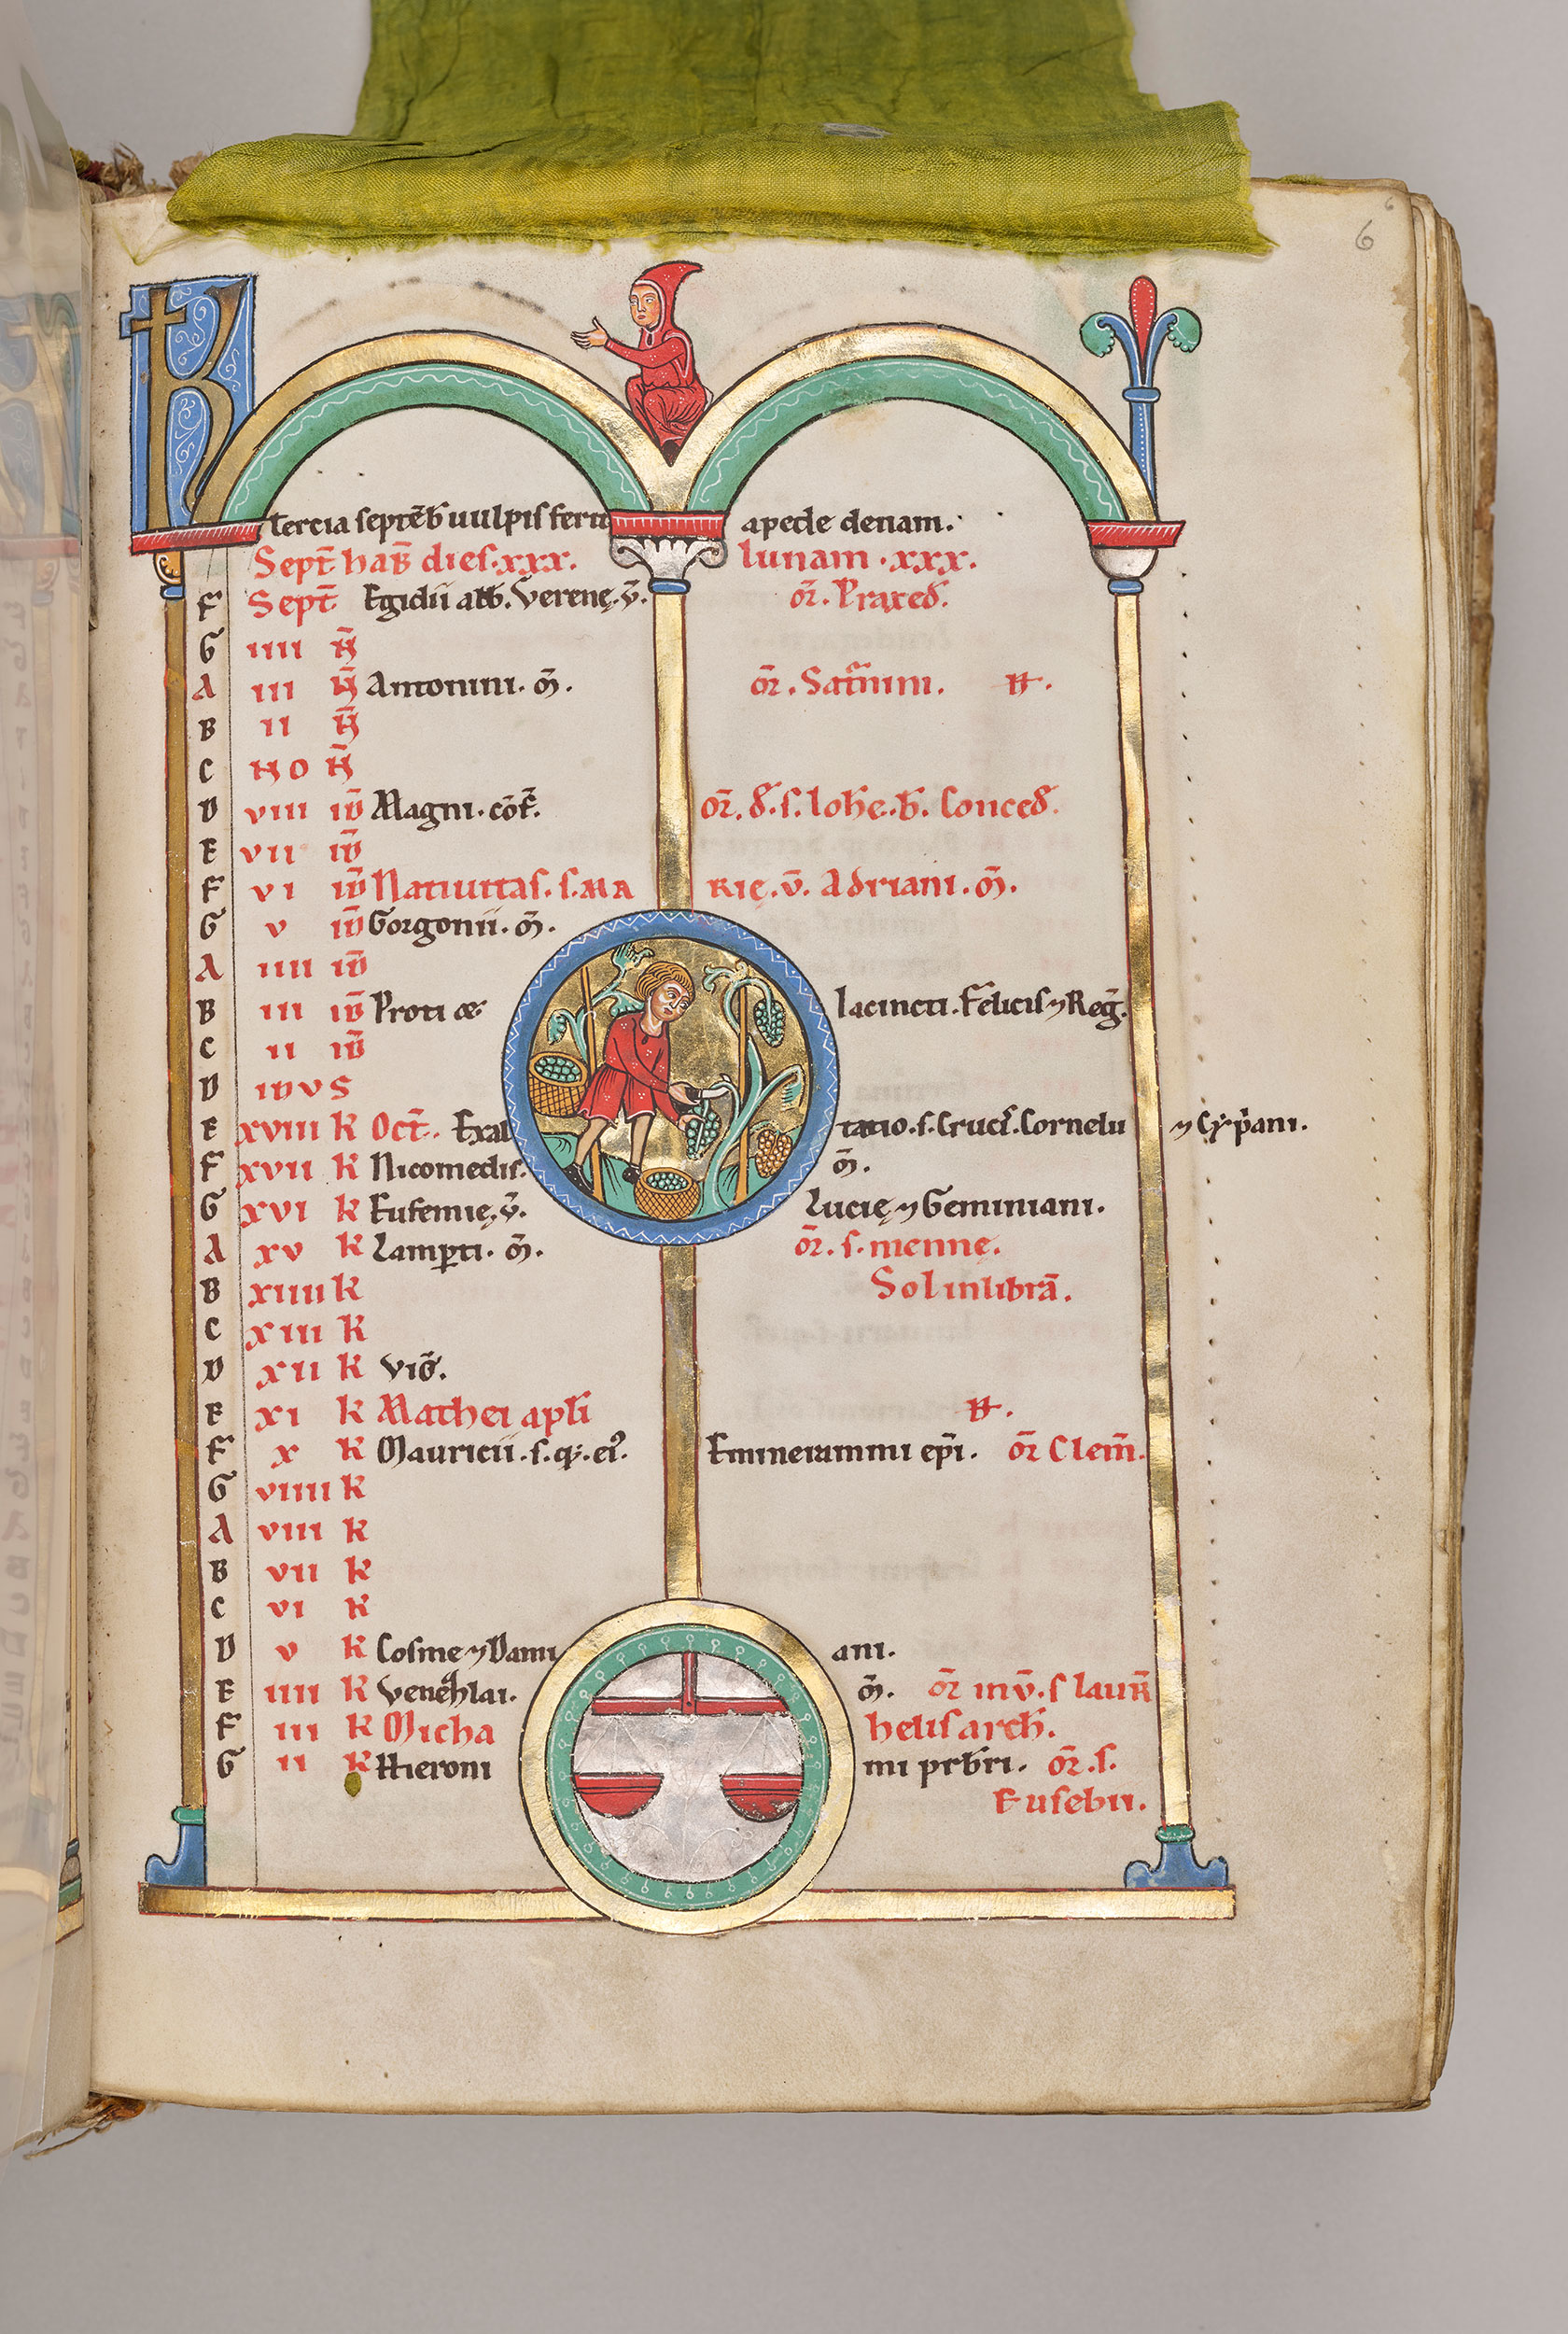 6
KL
tercia septēb uulpis ferit apede denam.
Sept̄ hab̄ dies.xxx. lunam .xxx.
F Sept̄ Egidii abb. Verenę.v̄. or̄. Praxed̄.
G iiii N̄
A iii N̄ Antonini. m̄. or̄. Sat̄nini. N.
B ii N̄
C NO N̄
D viii id̄ Magni. cōf̄. or̄. d̄. s. Ioh̄e. b̄. Conced̄.
E vii id̄
F vi id̄ Natiuitas. s. MA RIĘ. v̄. Adriani. m̄.
G v id̄ Gorgonii. m̄.
A iiii id̄
B iii id̄ Proti æ Iacincti. Felicis ⁊ Reḡ.
C ii id̄
D idvs
E xviii K Oct̄. Exal tatio. s. Crucꝭ. Cornelii ⁊ Cyp̄ani.
F xvii K Nicomedis. m̄.
G xvi K Eufemię. v̄. Lucię ⁊ Geminiani.
A xv K Lamp̄ti. m̄. or̄. s. mennę.
B xiiii K Sol in librā.
C xiii K
D xii K Viḡ.
E xi K Mathei apl̄i N.
F x K Mauricii. s. q;. eiꝰ. Emmerammi ep̄i. or̄ Clem̄.
G viiii K
A viii K
B vii K
C vi K
D v K Cosme ⁊ Dami ani.
E iiii K Venezlai. m̄. or̄ in v̄. s laur̄
F iii K Micha helis arch̄.
G ii K Hieroni mi prb̄ri. or̄. s.
Eusebii.